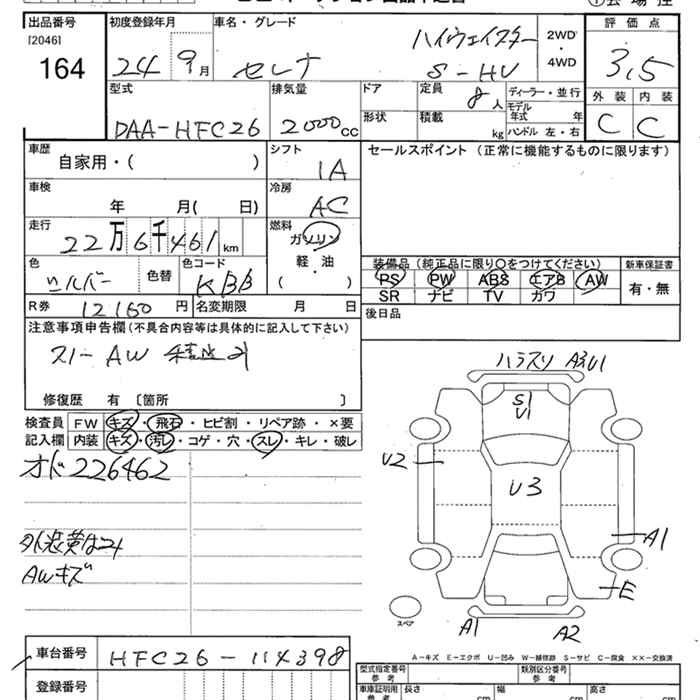 出品番号 初度登録年月 車名・グレード 評価点
[2046] 164 24 9月 セレナ ハイウェイスター S-HV 2WD・4WD 3.5
型式 排気量 ドア 定員 8人 ディーラー・並行 外装 内装
DAA-HFC26 2000cc 形状 積載 kg モデル年式 年 ハンドル 左・右 C C
車歴 自家用・( ) シフト IA セールスポイント (正常に機能するものに限ります)
車検 年 月( 日) 冷房 AC
走行 22万6千461km 燃料 ガソリン
軽・油
( )
装備品 (純正品に限り○をつけてください) 新車保証書
色 シルバー 色替 色コード KBB
PS PW ABS エアB AW 有・無
SR ナビ TV カワ
R券 12160円 名変期限 月 日 後日品
注意事項申告欄 (不具合内容等は具体的に記入して下さい)
AW
修復歴 有 [箇所 ]
検査員 FW キズ・飛石・ヒビ割・リペア跡・×要
記入欄 内装 キズ・汚レ・コゲ・穴・スレ・キレ・破レ
オド226462
AWキズ
ハラスリ A3U1
S1
U1
U2
U3
A1
E
スペア
A1 A2
A-キズ E-エクボ U-凹み W-補修跡 S-サビ C-腐食 ××-交換済
車台番号 HFC26-114398
登録番号
型式指定番号 参考 類別区分番号 参考
車庫証明用 参考 長さ cm 幅 cm 高さ cm